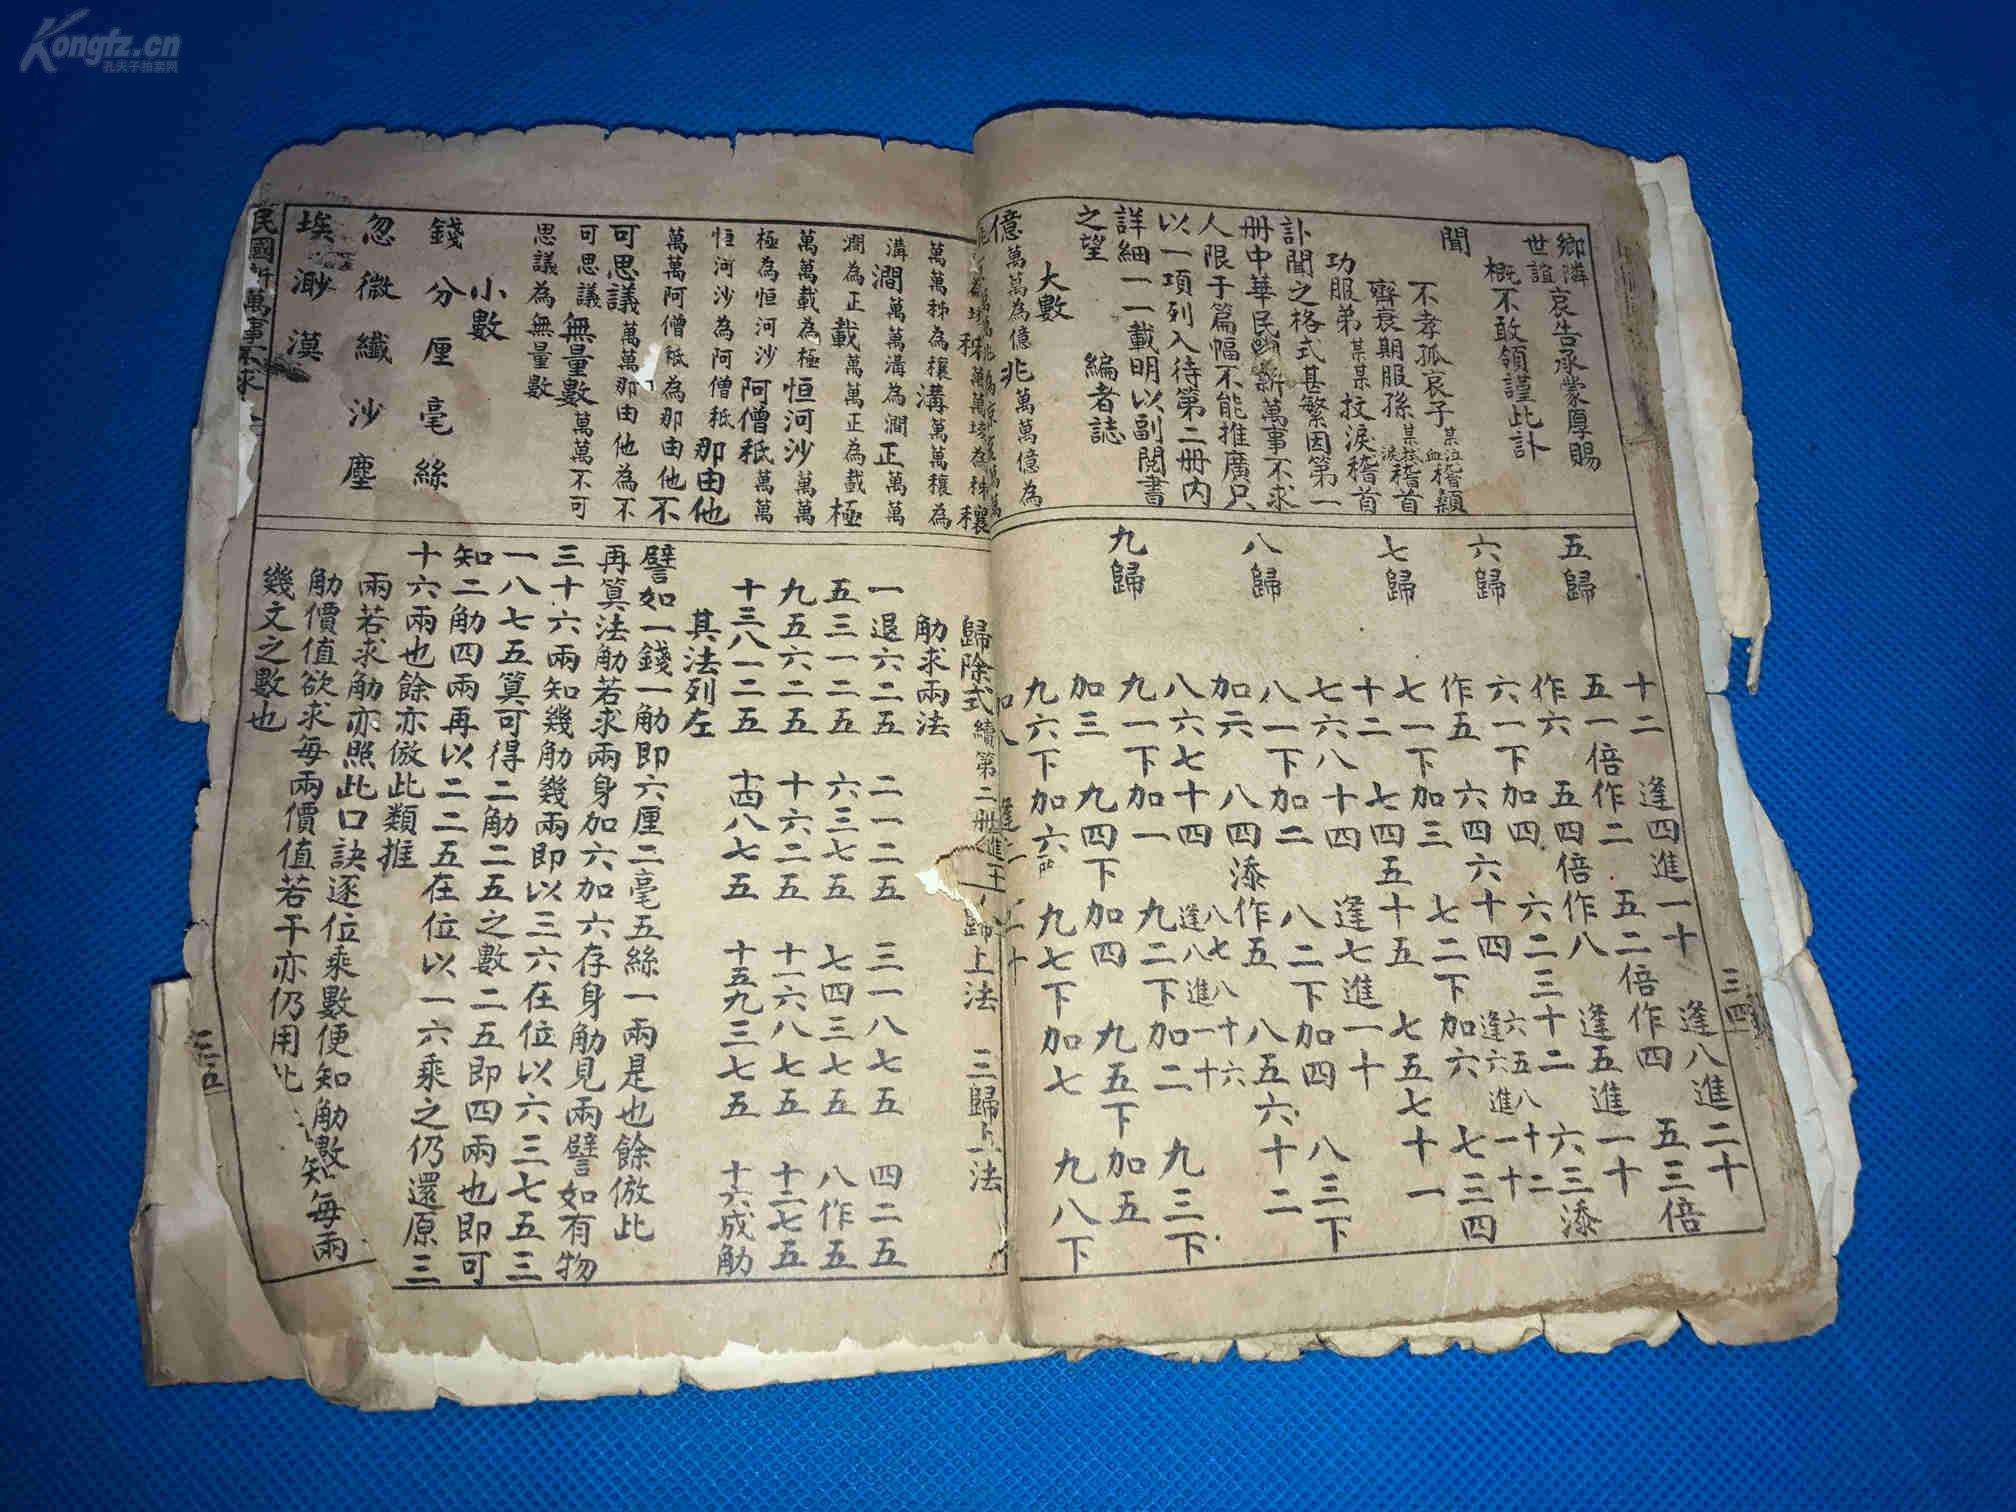 Kongfz.cn
孔夫子拍卖网
鄉隣
世誼
哀告承蒙厚賜
概不敢領謹此訃
聞
不孝孤哀子某泣血稽顙
齊衰期服孫某抆淚稽首
功服弟某某抆淚稽首
訃聞之格式甚繁因第一
册中華民國新萬事不求
人限于篇幅不能推廣只
以一項列入待第二册内
詳細一一載明以副閱書
之望
編者誌
大數
億萬萬為億兆萬萬億為
萬萬秭為穰溝萬萬穰為
溝澗萬萬溝為澗正萬萬
澗為正載萬萬正為載極
萬萬載為極恒河沙萬萬
極為恒河沙阿僧秖萬萬
恒河沙為阿僧秖那由他
萬萬阿僧秖為那由他不
可思議萬萬那由他為不
可思議無量數萬萬不可
思議為無量數
小數
錢分厘毫絲
忽微纖沙塵
埃渺漠
逢四進一十
逢八進二十
五歸
五一倍作二
五二倍作四
五三倍
作六
五四倍作八
逢五進一十
六歸
六一下加四
六二三十二
六三添
作五
六四六十四
六五八十二
逢六進一十
七歸
七一下加三
七二下加六
七三四
十二
七四五十五
七五七十一
七六八十四
逢七進一十
八歸
八一下加二
八二下加四
八三下
加六
八四添作五
八五六十二
八六七十四
八七八十六
逢八進一十
九歸
九一下加一
九二下加二
九三下
加三
九四下加四
九五下加五
九六下加六
九七下加七
九八下
歸除式
續第二册
歸上法
三歸上法
觔求兩法
一退六二五
二一二五
三一八七五
四二五
五三一二五
六三七五
七四三七五
八作五
九五六二五
十六二五
十一六八七五
十二七五
十三八一二五
十四八七五
十五九三七五
十六成觔
其法列左
譬如一錢一觔即六厘二毫五絲一兩是也餘倣此
再算法觔若求兩身加六加六存身觔見兩譬如有物
三十六兩知幾觔幾兩即以三六在位以六三七五三
一八七五算可得二觔二五之數二五即四兩也即可
知二觔四兩再以二二五在位以一六乘之仍還原三
十六兩也餘亦倣此類推
兩若求觔亦照此口訣逐位乘數便知觔數知每兩
觔價值欲求每兩價值若干亦仍用此
幾文之數也
三四